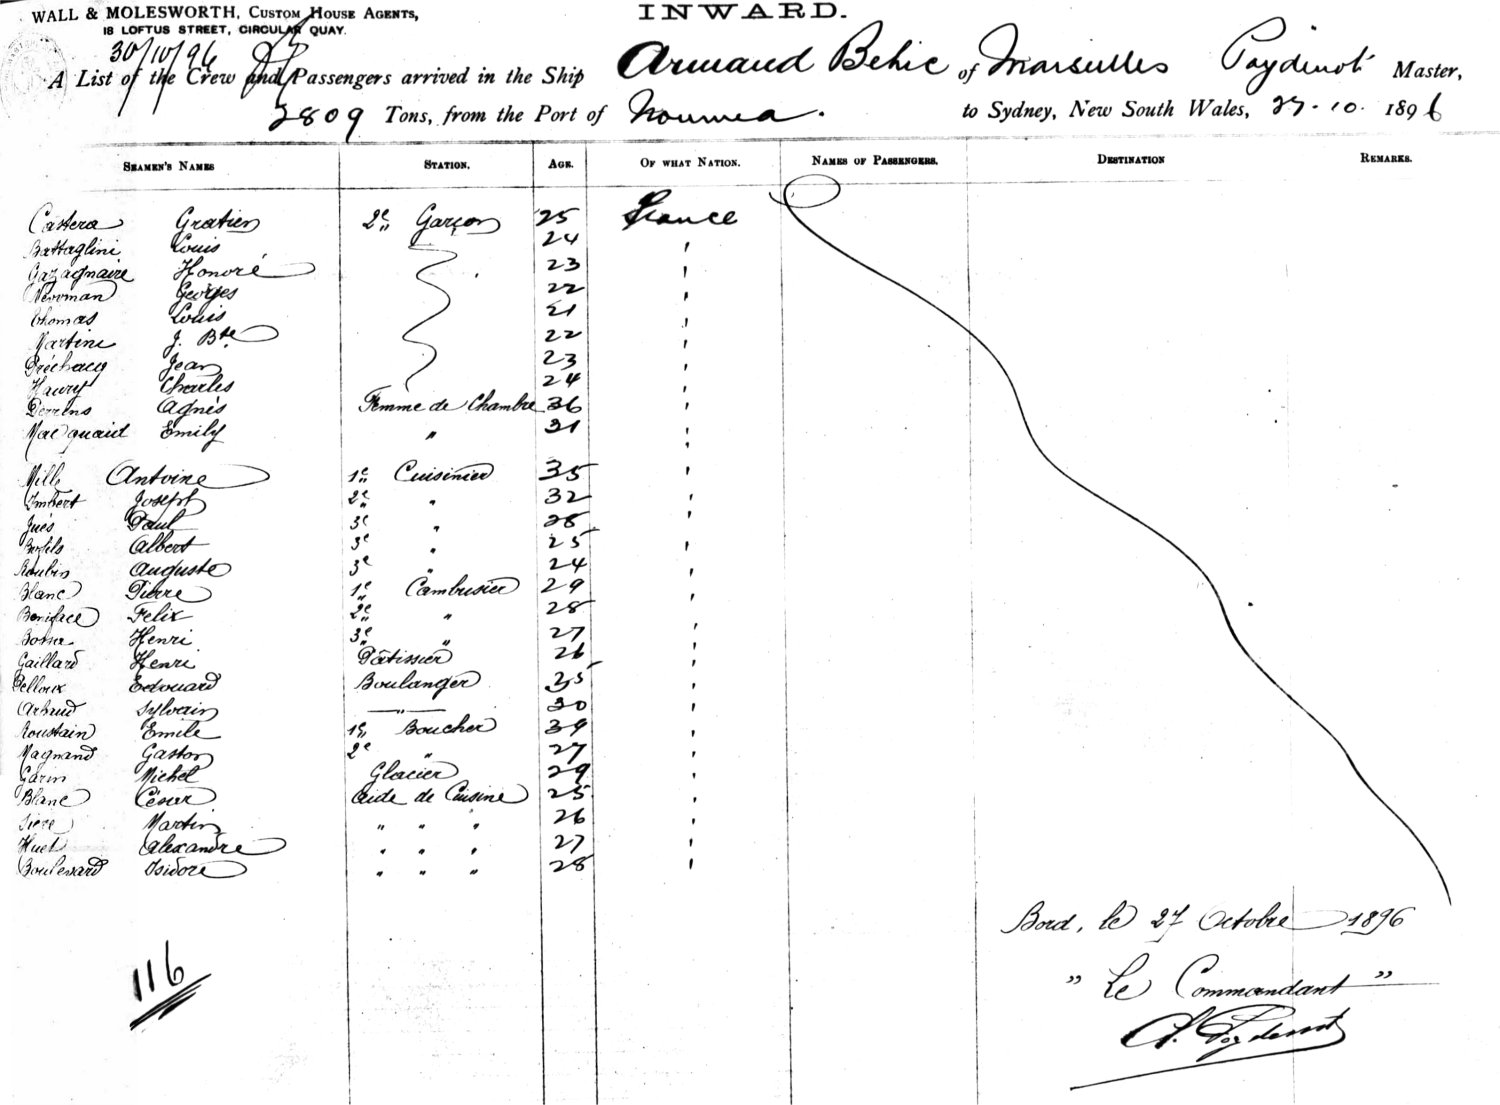 WALL & MOLESWORTH, CUSTOM HOUSE AGENTS,
18 LOFTUS STREET, CIRCULAR QUAY.
INWARD.
30/10/96
A List of the Crew and Passengers arrived in the Ship Armand Behic of Marseilles Poydenot Master,
2809 Tons, from the Port of Noumea. to Sydney, New South Wales, 27-10. 1896
SEAMEN'S NAMES STATION. AGE. OF WHAT NATION. NAMES OF PASSENGERS. DESTINATION REMARKS.
Castera Gratien 2e " Garçon 25 France
Battaglini Louis 24 '
Gazagnaire Honoré 23 '
Newman Georges 22 '
Thomas Louis 21 '
Martini J. Bte 22 '
Préchacq Jean 23 '
Haury Charles 24 '
Perrens Agnès Femme de Chambre 36 '
Macquaid Emily " 31 '
Mille Antoine 1e " Cuisinier 35 '
Imbert Joseph 2e " " 32 '
Paul 3e " 28 '
Albert 3e " 25 '
Roubin Auguste 3e " 24 '
Blanc Pierre 1e " Cambusier 29 '
Boniface Felix 2e " " 28 '
Henri 3e " " 27 '
Gaillard Henri Pâtissier 26 '
Pelloux Edouard Boulanger 25 '
Arnaud Sylvain — " — 30 '
Roustain Emile 1e " Boucher 39 '
Magnand Gaston 2e " 27 '
Garin Michel Glacier 29 '
Blanc César Aide de Cuisine 25 '
Martin " " " 26 '
Huet Alexandre " " " 27 '
Boulevard Isidore " " " 28 '
Bord, le 27 Octobre 1896
" Le Commandant "
A. Poydenot
116